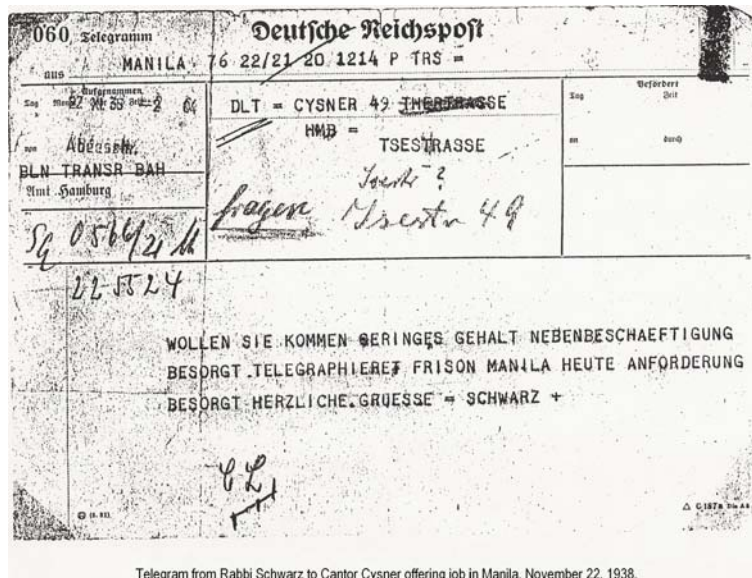 060 Telegramm
Deutsche Reichspost
aus MANILA 76 22/21 20 1214 P TRS =
Aufgenommen
Tag Zeit
von
BLN TRANSR BAH
Amt Hamburg
DLT = CYSNER 49 THERTRASSE
HMB =
TSESTRASSE
Isestr ?
fragen Isestr 49
Befördert
Tag Zeit
an durch
225524
WOLLEN SIE KOMMEN GERINGES GEHALT NEBENBESCHAEFTIGUNG
BESORGT .TELEGRAPHIERET FRISON MANILA HEUTE ANFORDERUNG
BESORGT HERZLICHE.GRUESSE = SCHWARZ +
Telegram from Rabbi Schwarz to Cantor Cysner offering job in Manila, November 22, 1938.